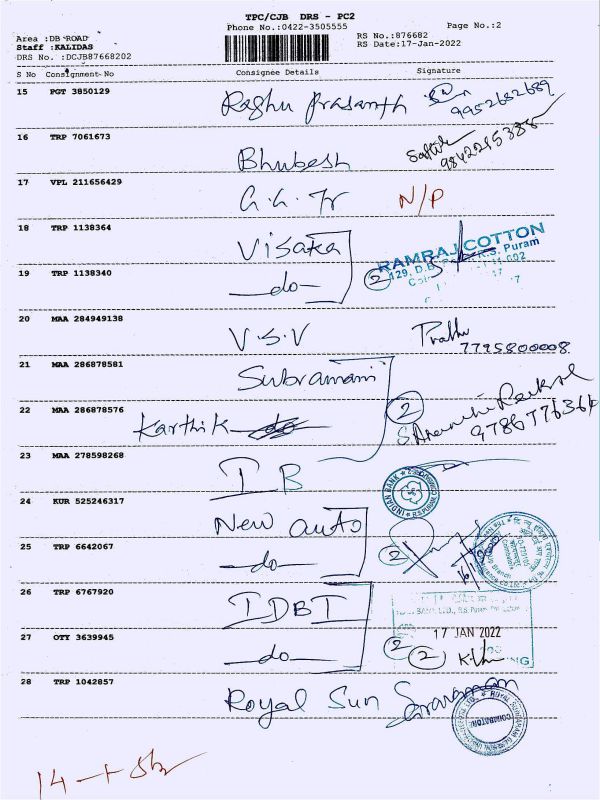 TPC/CJB DRS - PC2
Phone No.:0422-3505555 Page No.:2
Area :DB ROAD RS No.:876682
Staff :KALIDAS RS Date:17-Jan-2022
DRS No. :DCJB87668202
S No Consignment No Consignee Details Signature
15 PGT 3850129 Raghu Prasanth 9952682689
16 TRP 7061673 Bhubesh 9842295388
17 VPL 211656429 N/P
18 TRP 1138364 Visaka RAMRAJ COTTON
19 TRP 1138340 do 2
20 MAA 284949138 V.S.V Prabhu
7795800008
21 MAA 286878581 Subramani
22 MAA 286878576 Karthik do 2 9786776364
23 MAA 278598268 IB INDIAN BANK
24 KUR 525246317 New auto
25 TRP 6642067 do 2
26 TRP 6767920 IDBI
27 OTY 3639945 do 2 2 17 JAN 2022
28 TRP 1042857 Royal Sun Saravanan
COIMBATORE